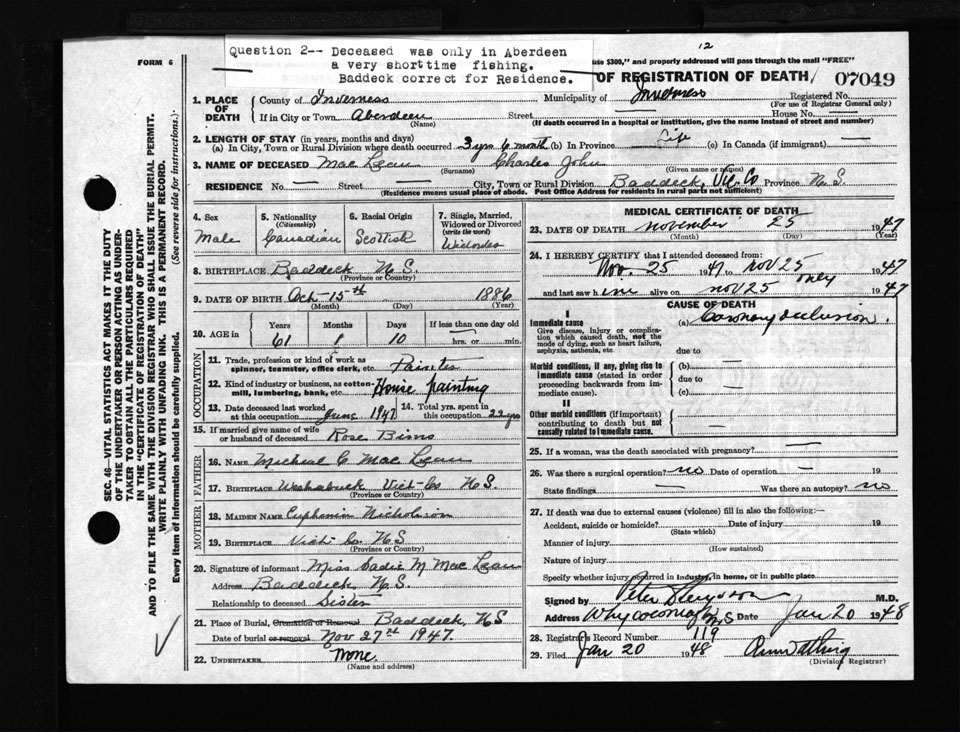 FORM 6
Question 2-- Deceased was only in Aberdeen
a very shorttime fishing.
Baddeck correct for Residence.
12
use $300," and properly addressed will pass through the mail "FREE"
OF REGISTRATION OF DEATH
07049
1. PLACE OF DEATH
County of Inverness Municipality of Inverness Registered No.
(For use of Registrar General only)
If in City or Town Aberdeen Street — House No. —
(Name) (If death occurred in a hospital or institution, give the name instead of street and number)
2. LENGTH OF STAY (in years, months and days)
(a) In City, Town or Rural Division where death occurred 3 yrs 6 month (b) In Province Life (c) In Canada (if immigrant) —
3. NAME OF DECEASED Mac Lean Charles John
(Surname) (Given name or names)
RESIDENCE No. — Street — City, Town or Rural Division Baddeck, Vic. Co Province N.S.
(Residence means usual place of abode. Post Office Address for residents in rural parts not sufficient)
4. Sex Male
5. Nationality (Citizenship) Canadian
6. Racial Origin Scottish
7. Single, Married, Widowed or Divorced (write the word)
8. BIRTHPLACE Baddeck N.S.
(Province or Country)
9. DATE OF BIRTH Oct 15th 1886
(Month) (Day) (Year)
10. AGE in Years 61 Months 1 Days 10 If less than one day old hrs. or min.
OCCUPATION
11. Trade, profession or kind of work as spinner, teamster, office clerk, etc. Painter
12. Kind of industry or business, as cotton-mill, lumbering, bank, etc. House painting
13. Date deceased last worked at this occupation June 1947
14. Total yrs. spent in this occupation 22 yrs
15. If married give name of wife or husband of deceased Rose Bims
FATHER
16. NAME Michael C Mac Lean
17. BIRTHPLACE Vict-Co N.S.
(Province or Country)
MOTHER
18. MAIDEN NAME Euphemia Nicholson
19. BIRTHPLACE Vict Co. N.S
(Province or Country)
20. Signature of informant Miss Sadie M Mac Lean
Address Baddeck N.S.
Relationship to deceased Sister
21. Place of Burial, Cremation or Removal Baddeck, N.S
Date of burial or removal Nov 27th 1947.
22. UNDERTAKER None.
(Name and address)
MEDICAL CERTIFICATE OF DEATH
23. DATE OF DEATH November 25 1947
(Month) (Day) (Year)
24. I HEREBY CERTIFY that I attended deceased from:
Nov. 25 1947 to Nov 25 only 1947
and last saw him alive on Nov 25 1947
CAUSE OF DEATH
I
Immediate cause
Give disease, injury or complication which caused death, not the mode of dying, such as heart failure, asphyxia, asthenia, etc.
(a) Coronary occlusion.
due to —
Morbid conditions, if any, giving rise to immediate cause (stated in order proceeding backwards from immediate cause).
(b) —
due to —
(c)
II
Other morbid conditions (if important) contributing to death but not causally related to immediate cause. —
25. If a woman, was the death associated with pregnancy? —
26. Was there a surgical operation? no Date of operation — 19
State findings — Was there an autopsy? no
27. If death was due to external causes (violence) fill in also the following:—
Accident, suicide or homicide? Date of injury 19
(State which)
Manner of injury
(How sustained)
Nature of injury
Specify whether injury occurred in industry, in home, or in public place
Signed by M.D.
Address Whycocomagh N.S Date Jan 20 1948
28. Registrar's Record Number 119
29. Filed Jan 20 1948
(Division Registrar)
SEC. 46—VITAL STATISTICS ACT MAKES IT THE DUTY
OF THE UNDERTAKER OR PERSON ACTING AS UNDER-
TAKER TO OBTAIN ALL THE PARTICULARS REQUIRED
IN THE "CERTIFICATE OF REGISTRATION OF DEATH"
AND TO FILE THE SAME WITH THE DIVISION REGISTRAR WHO SHALL ISSUE THE BURIAL PERMIT.
WRITE PLAINLY WITH UNFADING INK. THIS IS A PERMANENT RECORD.
Every item of information should be carefully supplied. (See reverse side for instructions.)